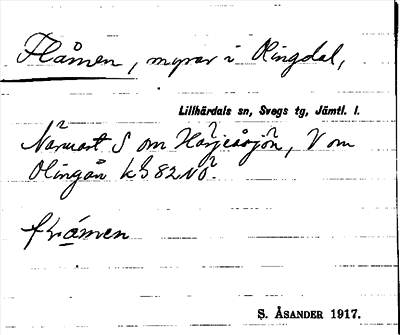 Flåmen, myrar i Olingdal,
Lillhärdals sn, Svegs tg, Jämtl. l.
Närmast S om Härjeåsjön, V om
Olingån k. G 82 NÖ.
flåmen
S. ÅSANDER 1917.